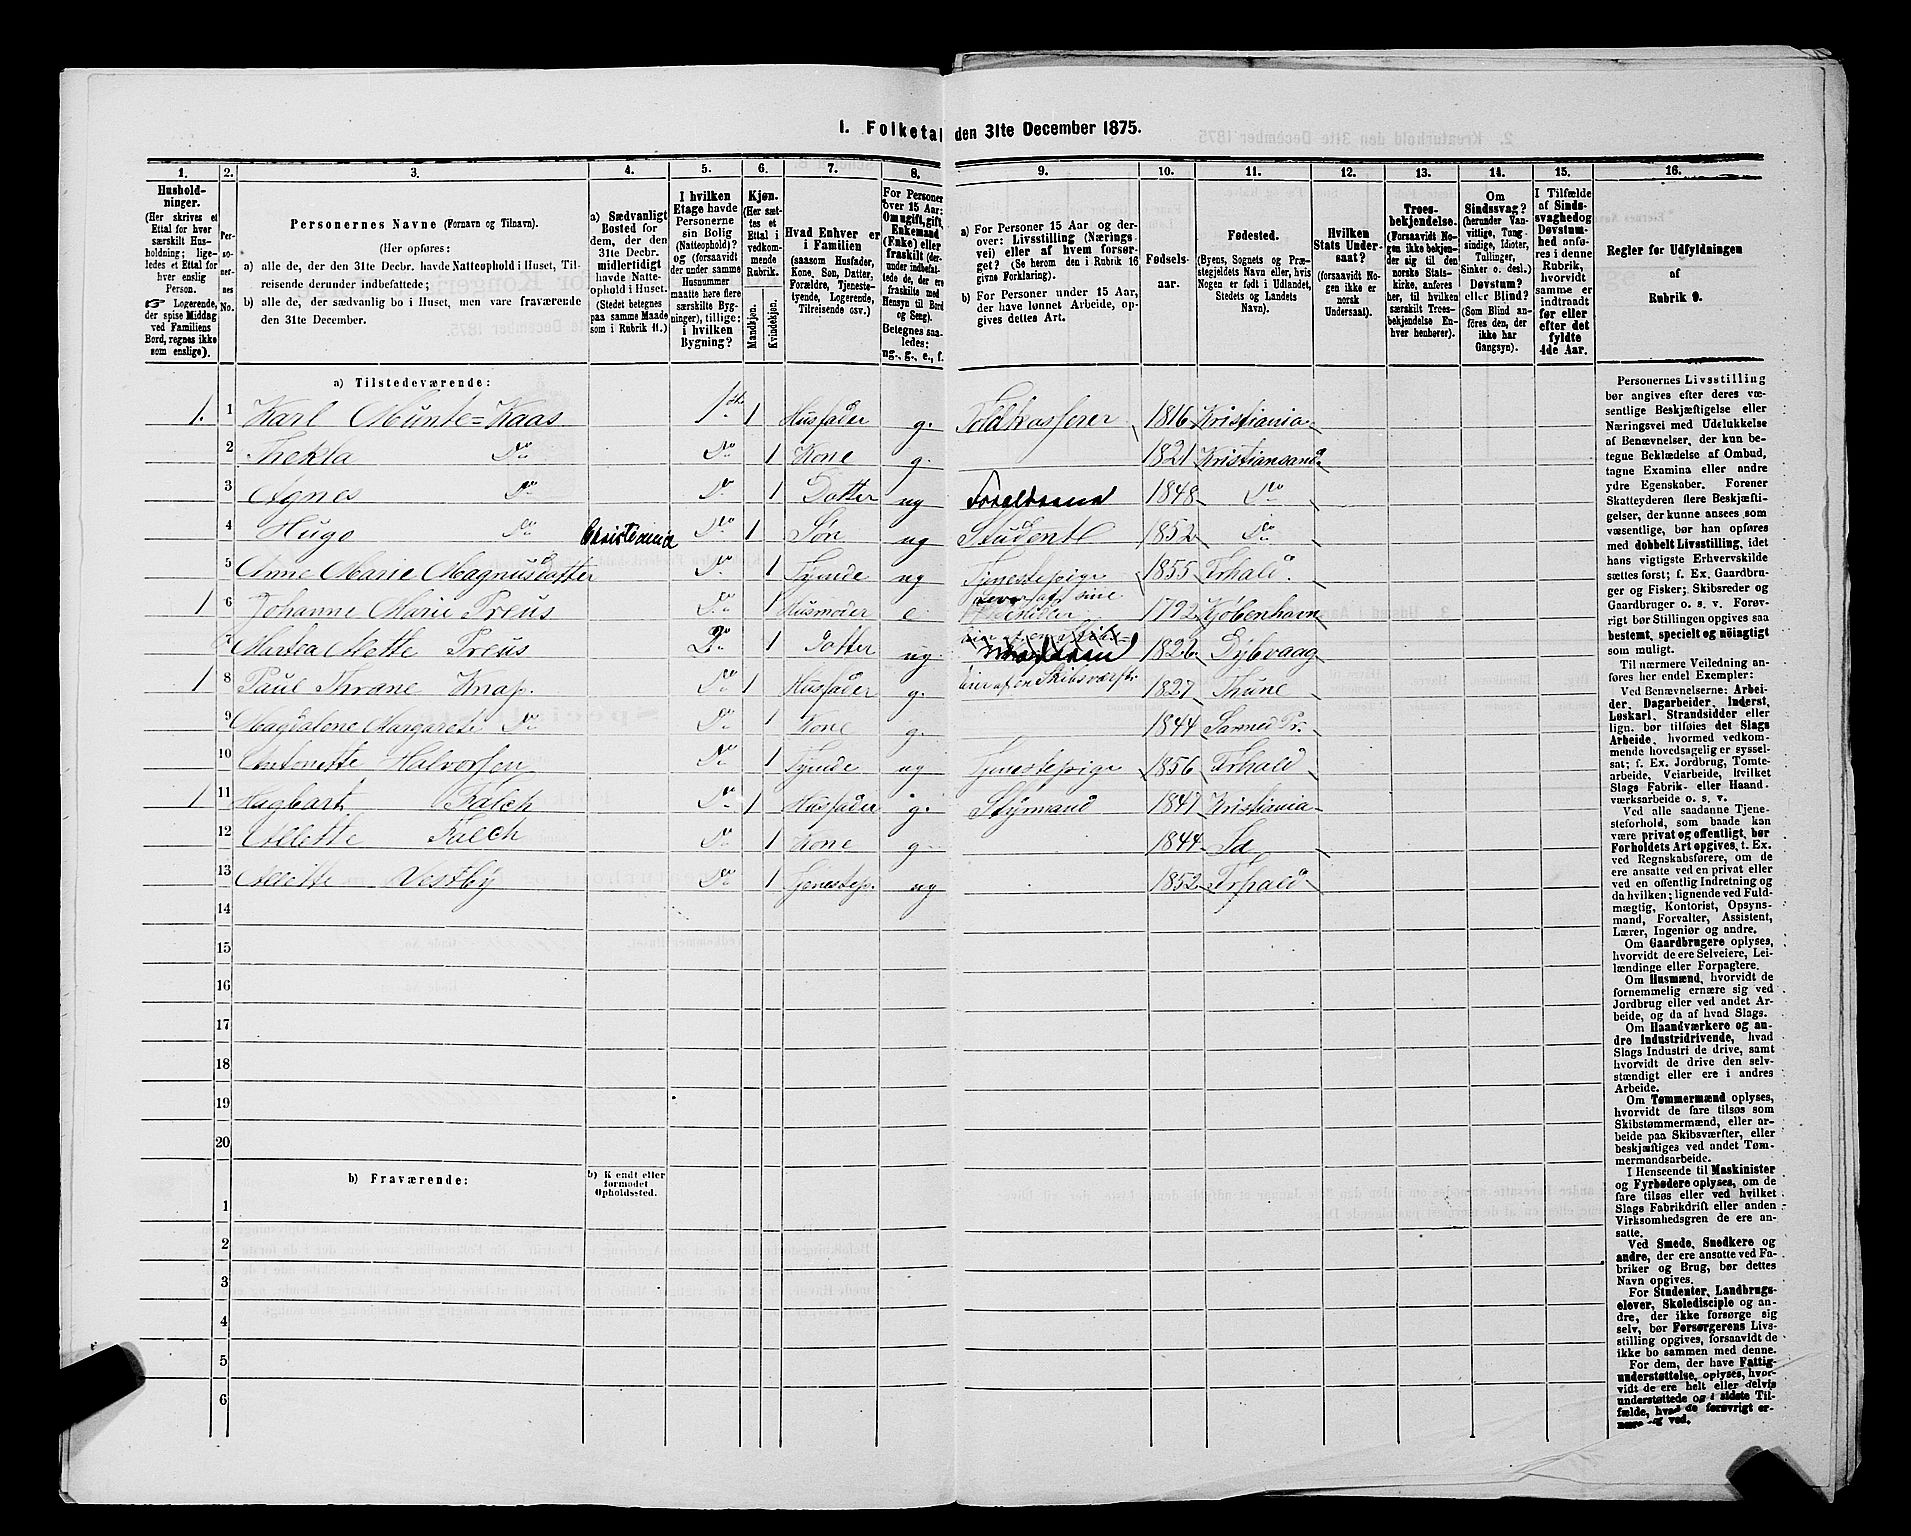 1. Folketal den 31te December 1875.
1. 2. 3. 4. 5. 6. 7. 8. 9. 10. 11. 12. 13. 14. 15. 16.
Hushold-
ninger.
(Her skrives et
Ettal for hver
særskilt Hus-
holdning; lige-
ledes et Ettal for
hver enslig
Person.
☞ Logerende,
der spise Middag
ved Familiens
Bord, regnes ikke
som enslige).
Per-
soner-
nes
No.
Personernes Navne (Fornavn og Tilnavn).
(Her opføres:
a) alle de, der den 31te Decbr. havde Natteophold i Huset, Til-
reisende derunder indbefattede;
b) alle de, der sædvanlig bo i Huset, men vare fraværende
den 31te December.
a) Sædvanligt
Bosted for
dem, der den
31te Decbr.
midlertidigt
havde Natte-
ophold i Huset.
(Stedet betegnes
paa samme Maade
som i Rubrik 11.)
I hvilken
Etage havde
Personerne
sin Bolig
(Natteophold)?
og (forsaavidt
der under samme
Husnummer
maatte høre flere
særskilte Byg-
ninger), tillige:
i hvilken
Bygning?
Kjøn.
(Her sæt-
tes et
Ettal i
vedkom-
mende
Rubrik.
Mandkjøn.
Kvindekjøn.
Hvad Enhver er
i Familien
(saasom Husfader,
Kone, Søn, Datter,
Forældre, Tjeneste-
tyende, Logerende,
Tilreisende osv.)
For Personer
over 15 Aar:
Om ugift, gift,
Enkemand
(Enke) eller
fraskilt (der-
under indbefat-
tede de, der ere
fraskilte med
Hensyn til Bord
og Seng).
Betegnes saa-
ledes:
ug., g., e., f.
a) For Personer 15 Aar og der-
over: Livsstilling (Nærings-
vei) eller af hvem forsør-
get? (Se herom den i Rubrik 16
givne Forklaring).
b) For Personer under 15 Aar,
der have lønnet Arbeide, op-
gives dettes Art.
Fødsels-
aar.
Fødested.
(Byens, Sognets og Præ-
stegjeldets Navn eller, hvis
Nogen er født i Udlandet,
Stedets og Landets
Navn).
Hvilken
Stats Under-
saat?
(forsaavidt No-
gen ikke er
norsk
Undersaat).
Troes-
bekjendelse.
(Forsaavidt No-
gen ikke bekjen-
der sig til den
norske Stats-
kirke, anføres
her, til hvilken
særskilt Troes-
bekjendelse En-
hver henhører).
Om
Sindssvag?
(herunder Van-
vittige, Tung-
sindige, Idioter,
Tullinger,
Sinker o. desl.)
Døvstum?
eller Blind?
(Som Blind an-
føres den, der
ikke har
Gangsyn).
I Tilfælde
af Sinds-
svaghed og
Døvstum-
hed anfø-
res i denne
Rubrik,
hvorvidt
samme er
indtraadt
før eller
efter det
fyldte
4de Aar.
Regler for Udfyldningen
af
Rubrik 9.
a) Tilstedeværende:
1. 1 Karl Munte=Kaas 1ste 1 Husfader g. Toldkasserer 1816 Kristiania
2 Thekla Do Do 1 Kone g. 1821 Kristiansand
3 Agnes Do Do 1 Datter ug 1848 Do
4 Hugo Do Christiania Do 1 Søn ug Student 1852 Do
5 Anne Marie Magnusdatter Do 1 Tyende ug Tjenestepige 1855 Frhald.
1 6 Johanne Marie Preus Do 1 Husmoder e lever af sine Midler 1792 Kjøbenhavn
7 Martea Mette Preus Do 1 Datter ug. 1826 Dybvaag
1 8 Paul Thrane Knap. Do 1 Husfader g. eier af en Skibsværft 1827 Thune
9 Magdalone Margarete Do Do 1 Kone g. 1844
10 Antonette Halvorsen Do 1 Tyende ug Tjenestepige 1856 Frhald
1 11 Hagbart Falch Do 1 Husfader g. Styrmand 1847 Kristiania
12 Allette Falch Do 1 Kone g. 1844
13 Allette Vestby Do 1 Tjenestep. ug 1852 Frhald
14
15
16
17
18
19
20
b) Fraværende:
b) Kjendt eller
formodet
Opholdssted.
1
2
3
4
5
6
Personernes Livsstilling
bør angives efter deres væ-
sentlige Beskjæftigelse eller
Næringsvei med Udelukkelse
af Benævnelser, der kun be-
tegne Beklædelse af Ombud,
tagne Examina eller andre
ydre Egenskaber. Forener
Skatteyderen flere Beskjæfti-
gelser, der kunne ansees som
væsentlige, bør han opføres
med dobbelt Livsstilling, idet
hans vigtigste Erhvervskilde
sættes først; f. Ex. Gaardbru-
ger og Fisker; Skibsreder og
Gaardbruger o. s. v. Forøv-
rigt bør Stillingen opgives saa
bestemt, specielt og nøiagtigt
som muligt.
Til nærmere Veiledning an-
føres her endel Exempler:
Ved Benævnelserne: Arbei-
der, Dagarbeider, Inderst,
Løskarl, Strandsidder eller
lign. bør tilføies det Slags
Arbeide, hvormed vedkom-
mende hovedsagelig er syssel-
sat; f. Ex. Jordbrug, Tomte-
arbeide, Veiarbeide, hvilket
Slags Fabrik- eller Haand-
værksarbeide o. s. v.
Ved alle saadanne Tjene-
steforhold, som baade kan
være privat og offentligt, bør
Forholdets Art opgives, t. Ex.
ved Regnskabsførere, om de
ere ansatte ved en privat eller
ved en offentlig Indretning og
da hvilken; lignende ved Fuld-
mægtig, Kontorist, Opsyns-
mand, Forvalter, Assistent,
Lærer, Ingeniør og andre.
Om Gaardbrugere oplyses,
hvorvidt de ere Selveiere, Lei-
lændinge eller Forpagtere.
Om Husmænd, hvorvidt de
fornemmelig ernære sig ved
Jordbrug eller ved andet Ar-
beide, og da af hvad Slags.
Om Haandværkere og an-
dre Industridrivende, hvad
Slags Industri de drive, samt
hvorvidt de drive den selv-
stændigt eller ere i andres
Arbeide.
Om Tømmermænd oplyses,
hvorvidt de fare tilsøs som
Skibstømmermænd, eller ar-
beide paa Skibsværfter, eller
beskjæftiges ved andet Tøm-
mermandsarbeide.
I Henseende til Maskinister
og Fyrbødere oplyses, om de
fare tilsøs eller ved hvilket
Slags Fabrikdrift eller anden
Virksomhedsgren de ere an-
satte.
Ved Smede, Snedkere og
andre, der ere ansatte ved Fa-
briker og Brug, bør dettes
Navn opgives.
For Studenter, Landbrugs-
elever, Skoledisciple og an-
dre, der ikke forsørge sig
selv, bør Forsørgerens Livs-
stilling opgives, forsaavidt de
ikke bo sammen med denne.
For dem, der have Fattig-
understøttelse, oplyses, hvor-
vidt de ere helt eller delvis
understøttede og i sidste Til-
fælde, hvad de forøvrigt er-
nære sig ved.